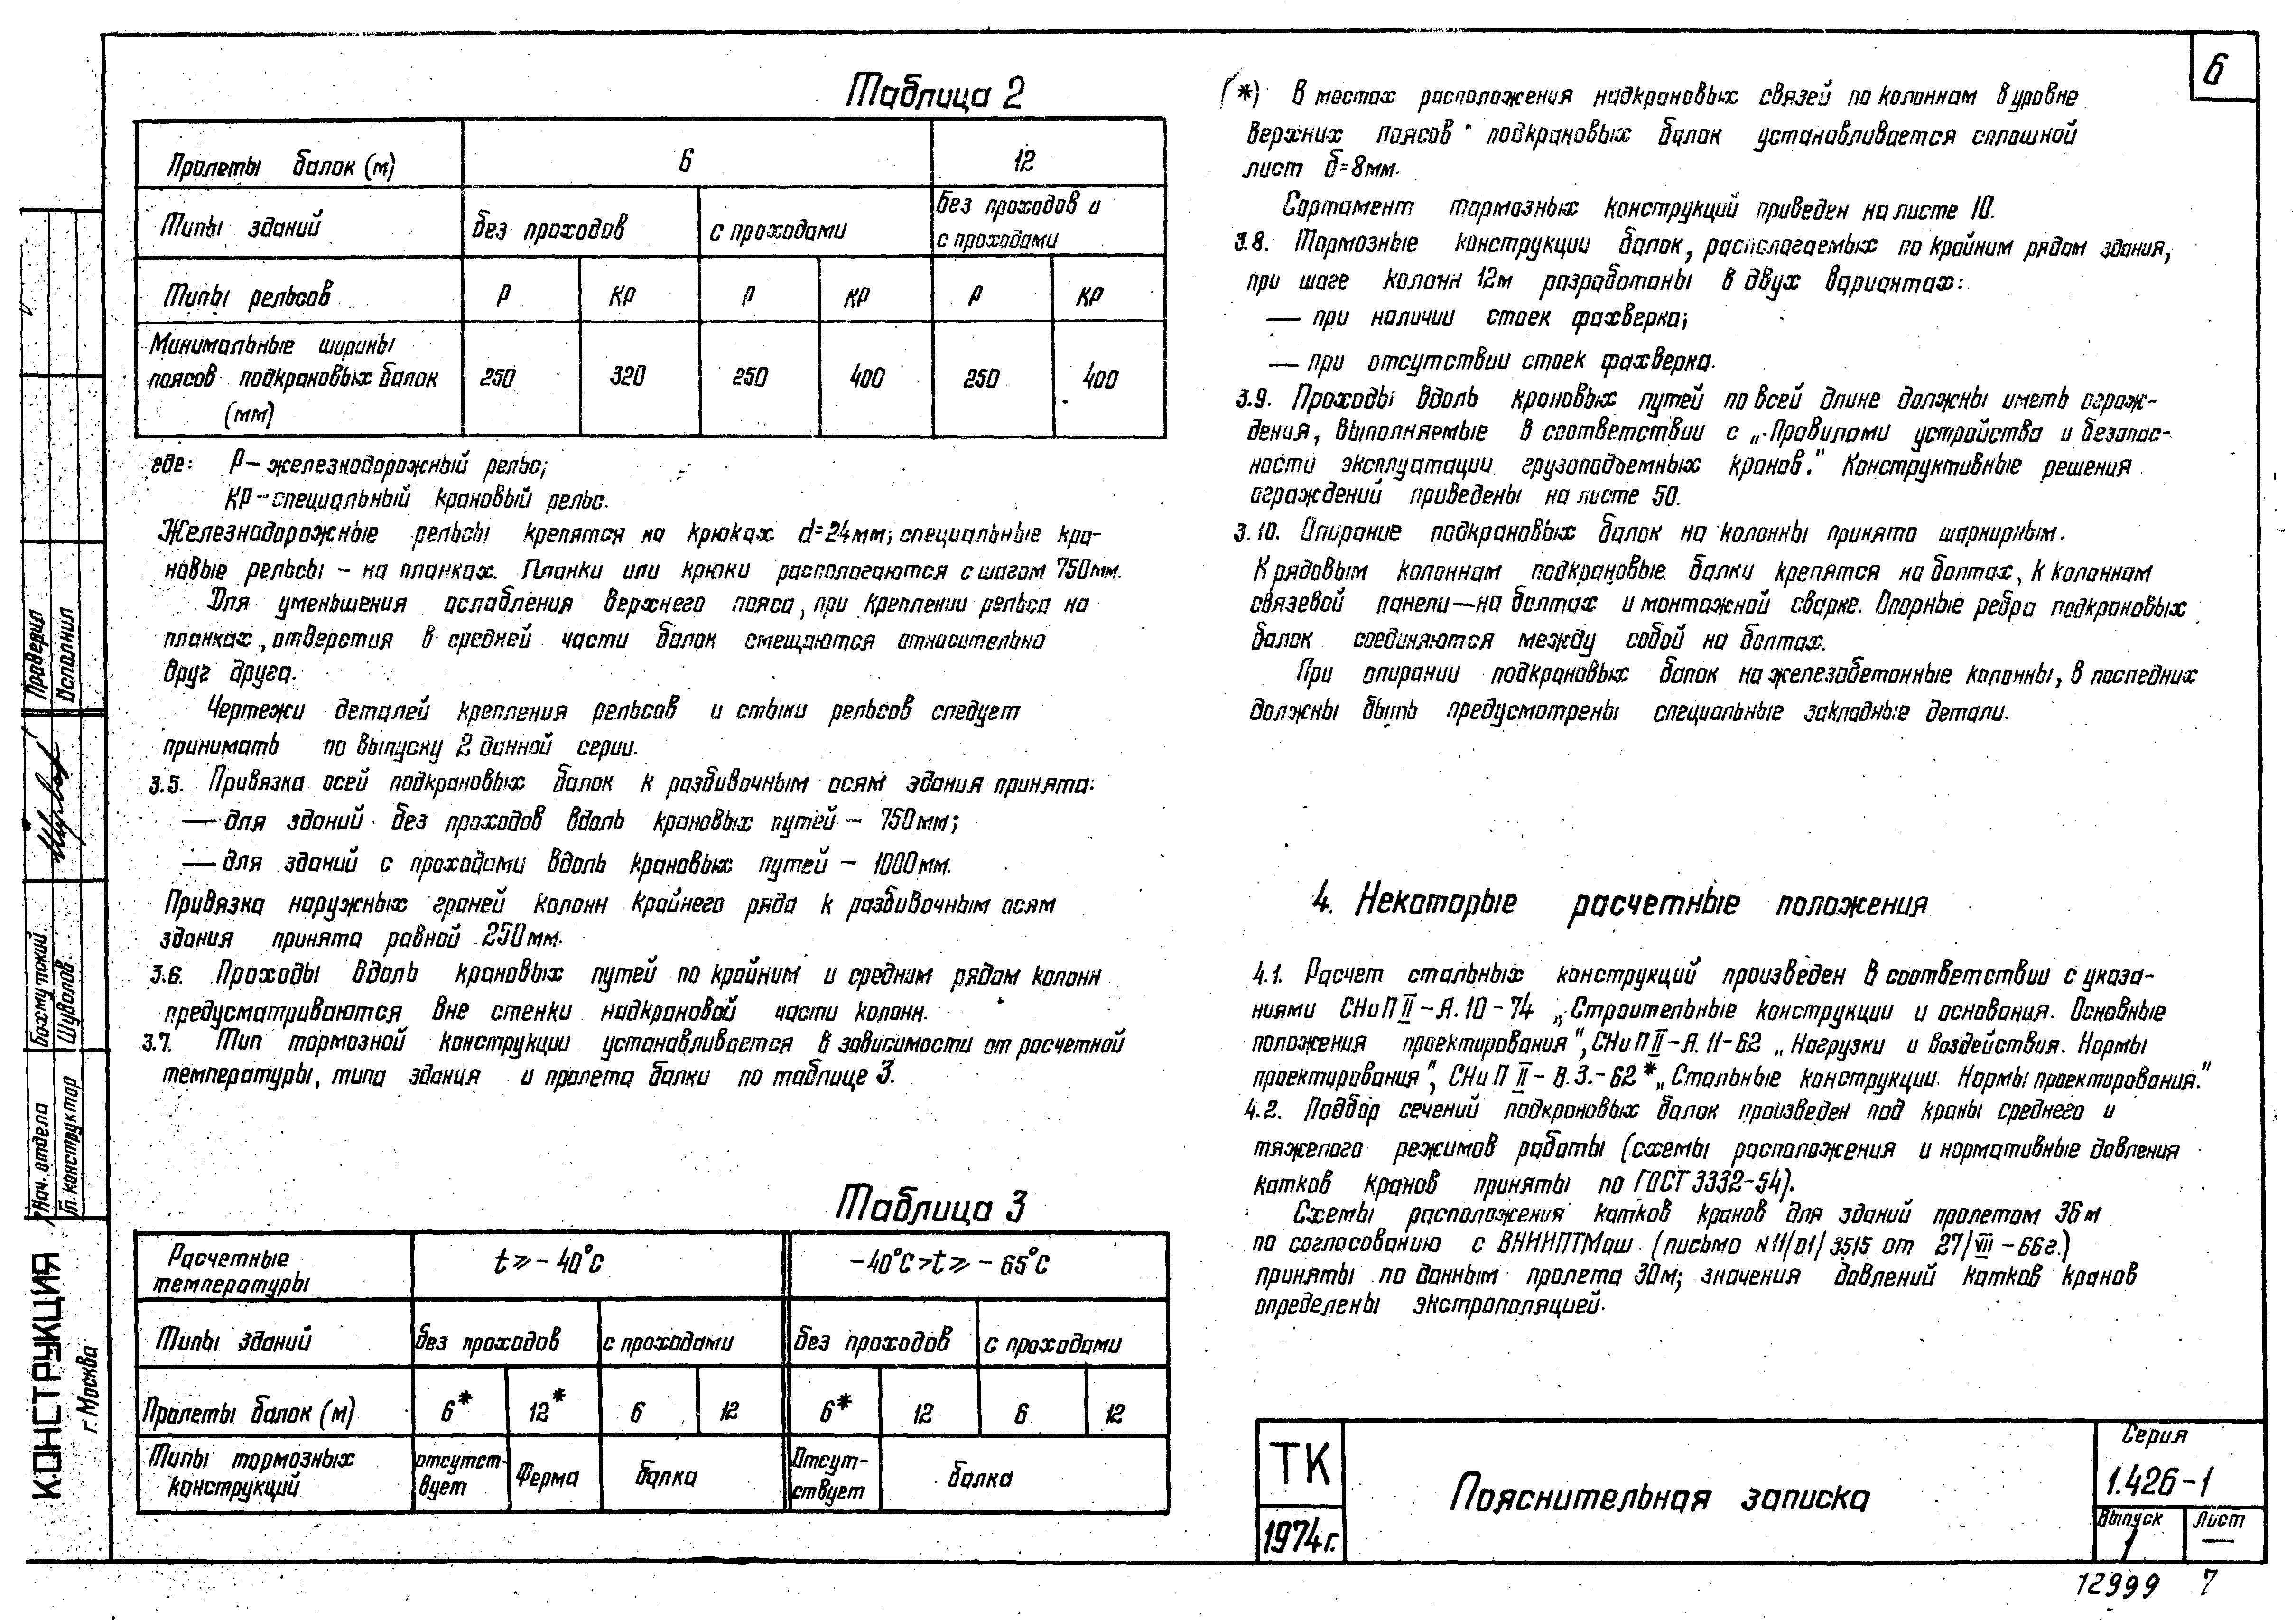 6
Таблица 2
Пролеты балок (м) 6 12
Типы зданий без проходов с проходами без проходов и с проходами
Типы рельсов Р КР Р КР Р КР
Минимальные ширины
поясов подкрановых балок 250 320 250 400 250 400
(мм)
где: Р – железнодорожный рельс;
КР – специальный крановый рельс.
Железнодорожные рельсы крепятся на крюках d=24мм; специальные кра-
новые рельсы – на планках. Планки или крюки располагаются с шагом 750мм.
Для уменьшения ослабления верхнего пояса, при креплении рельса на
планках, отверстия в средней части балок смещаются относительно
друг друга.
Чертежи деталей крепления рельсов и стыки рельсов следует
принимать по выпуску 2 данной серии.
3.5. Привязка осей подкрановых балок к разбивочным осям здания принята:
— для зданий без проходов вдоль крановых путей – 750мм;
— для зданий с проходами вдоль крановых путей – 1000мм.
Привязка наружных граней колонн крайнего ряда к разбивочным осям
здания принята равной 250мм.
3.6. Проходы вдоль крановых путей по крайним и средним рядам колонн
предусматриваются вне стенки надкрановой части колонн.
3.7. Тип тормозной конструкции устанавливается в зависимости от расчетной
температуры, типа здания и пролета балки по таблице 3.
Таблица 3
Расчетные температуры t ≥ -40°С -40°С > t ≥ -65°С
Типы зданий без проходов с проходами без проходов с проходами
Пролеты балок (м) 6* 12* 6 12 6* 12 6 12
Типы тормозных конструкций отсутст-вует Ферма балка Отсут-ствует балка
(*) В местах расположения надкрановых связей по колоннам в уровне
верхних поясов подкрановых балок устанавливается сплошной
лист δ=8мм.
Сортамент тормозных конструкций приведен на листе 10.
3.8. Тормозные конструкции балок, располагаемых по крайним рядам здания,
при шаге колонн 12м разработаны в двух вариантах:
— при наличии стоек фахверка;
— при отсутствии стоек фахверка.
3.9. Проходы вдоль крановых путей по всей длине должны иметь ограж-
дения, выполняемые в соответствии с „Правилами устройства и безопас-
ности эксплуатации грузоподъемных кранов." Конструктивные решения
ограждений приведены на листе 50.
3.10. Опирание подкрановых балок на колонны принято шарнирным.
К рядовым колоннам подкрановые балки крепятся на болтах, к колоннам
связевой панели — на болтах и монтажной сварке. Опорные ребра подкрановых
балок соединяются между собой на болтах.
При опирании подкрановых балок на железобетонные колонны, в последних
должны быть предусмотрены специальные закладные детали.
4. Некоторые расчетные положения
4.1. Расчет стальных конструкций произведен в соответствии с указа-
ниями СНиП II-А.10-74 „Строительные конструкции и основания. Основные
положения проектирования", СНиП II-А.11-62 „Нагрузки и воздействия. Нормы
проектирования", СНиП II-В.3.-62* „Стальные конструкции. Нормы проектирования."
4.2. Подбор сечений подкрановых балок произведен под краны среднего и
тяжелого режимов работы (схемы расположения и нормативные давления
катков кранов приняты по ГОСТ 3332-54).
Схемы расположения катков кранов для зданий пролетом 36м
по согласованию с ВНИИПТМаш (письмо N11/01/3515 от 27/VIII-66г.)
приняты по данным пролета 30м; значения давлений катков кранов
определены экстраполяцией.
ТК
1974г.
Пояснительная записка
Серия
1.426-1
Выпуск Лист
1 —
12999 7
Проверил
Исполнил
Бахмутский
Шувалов
Нач. отдела
Гл. конструктор
КОНСТРУКЦИЯ
г. Москва